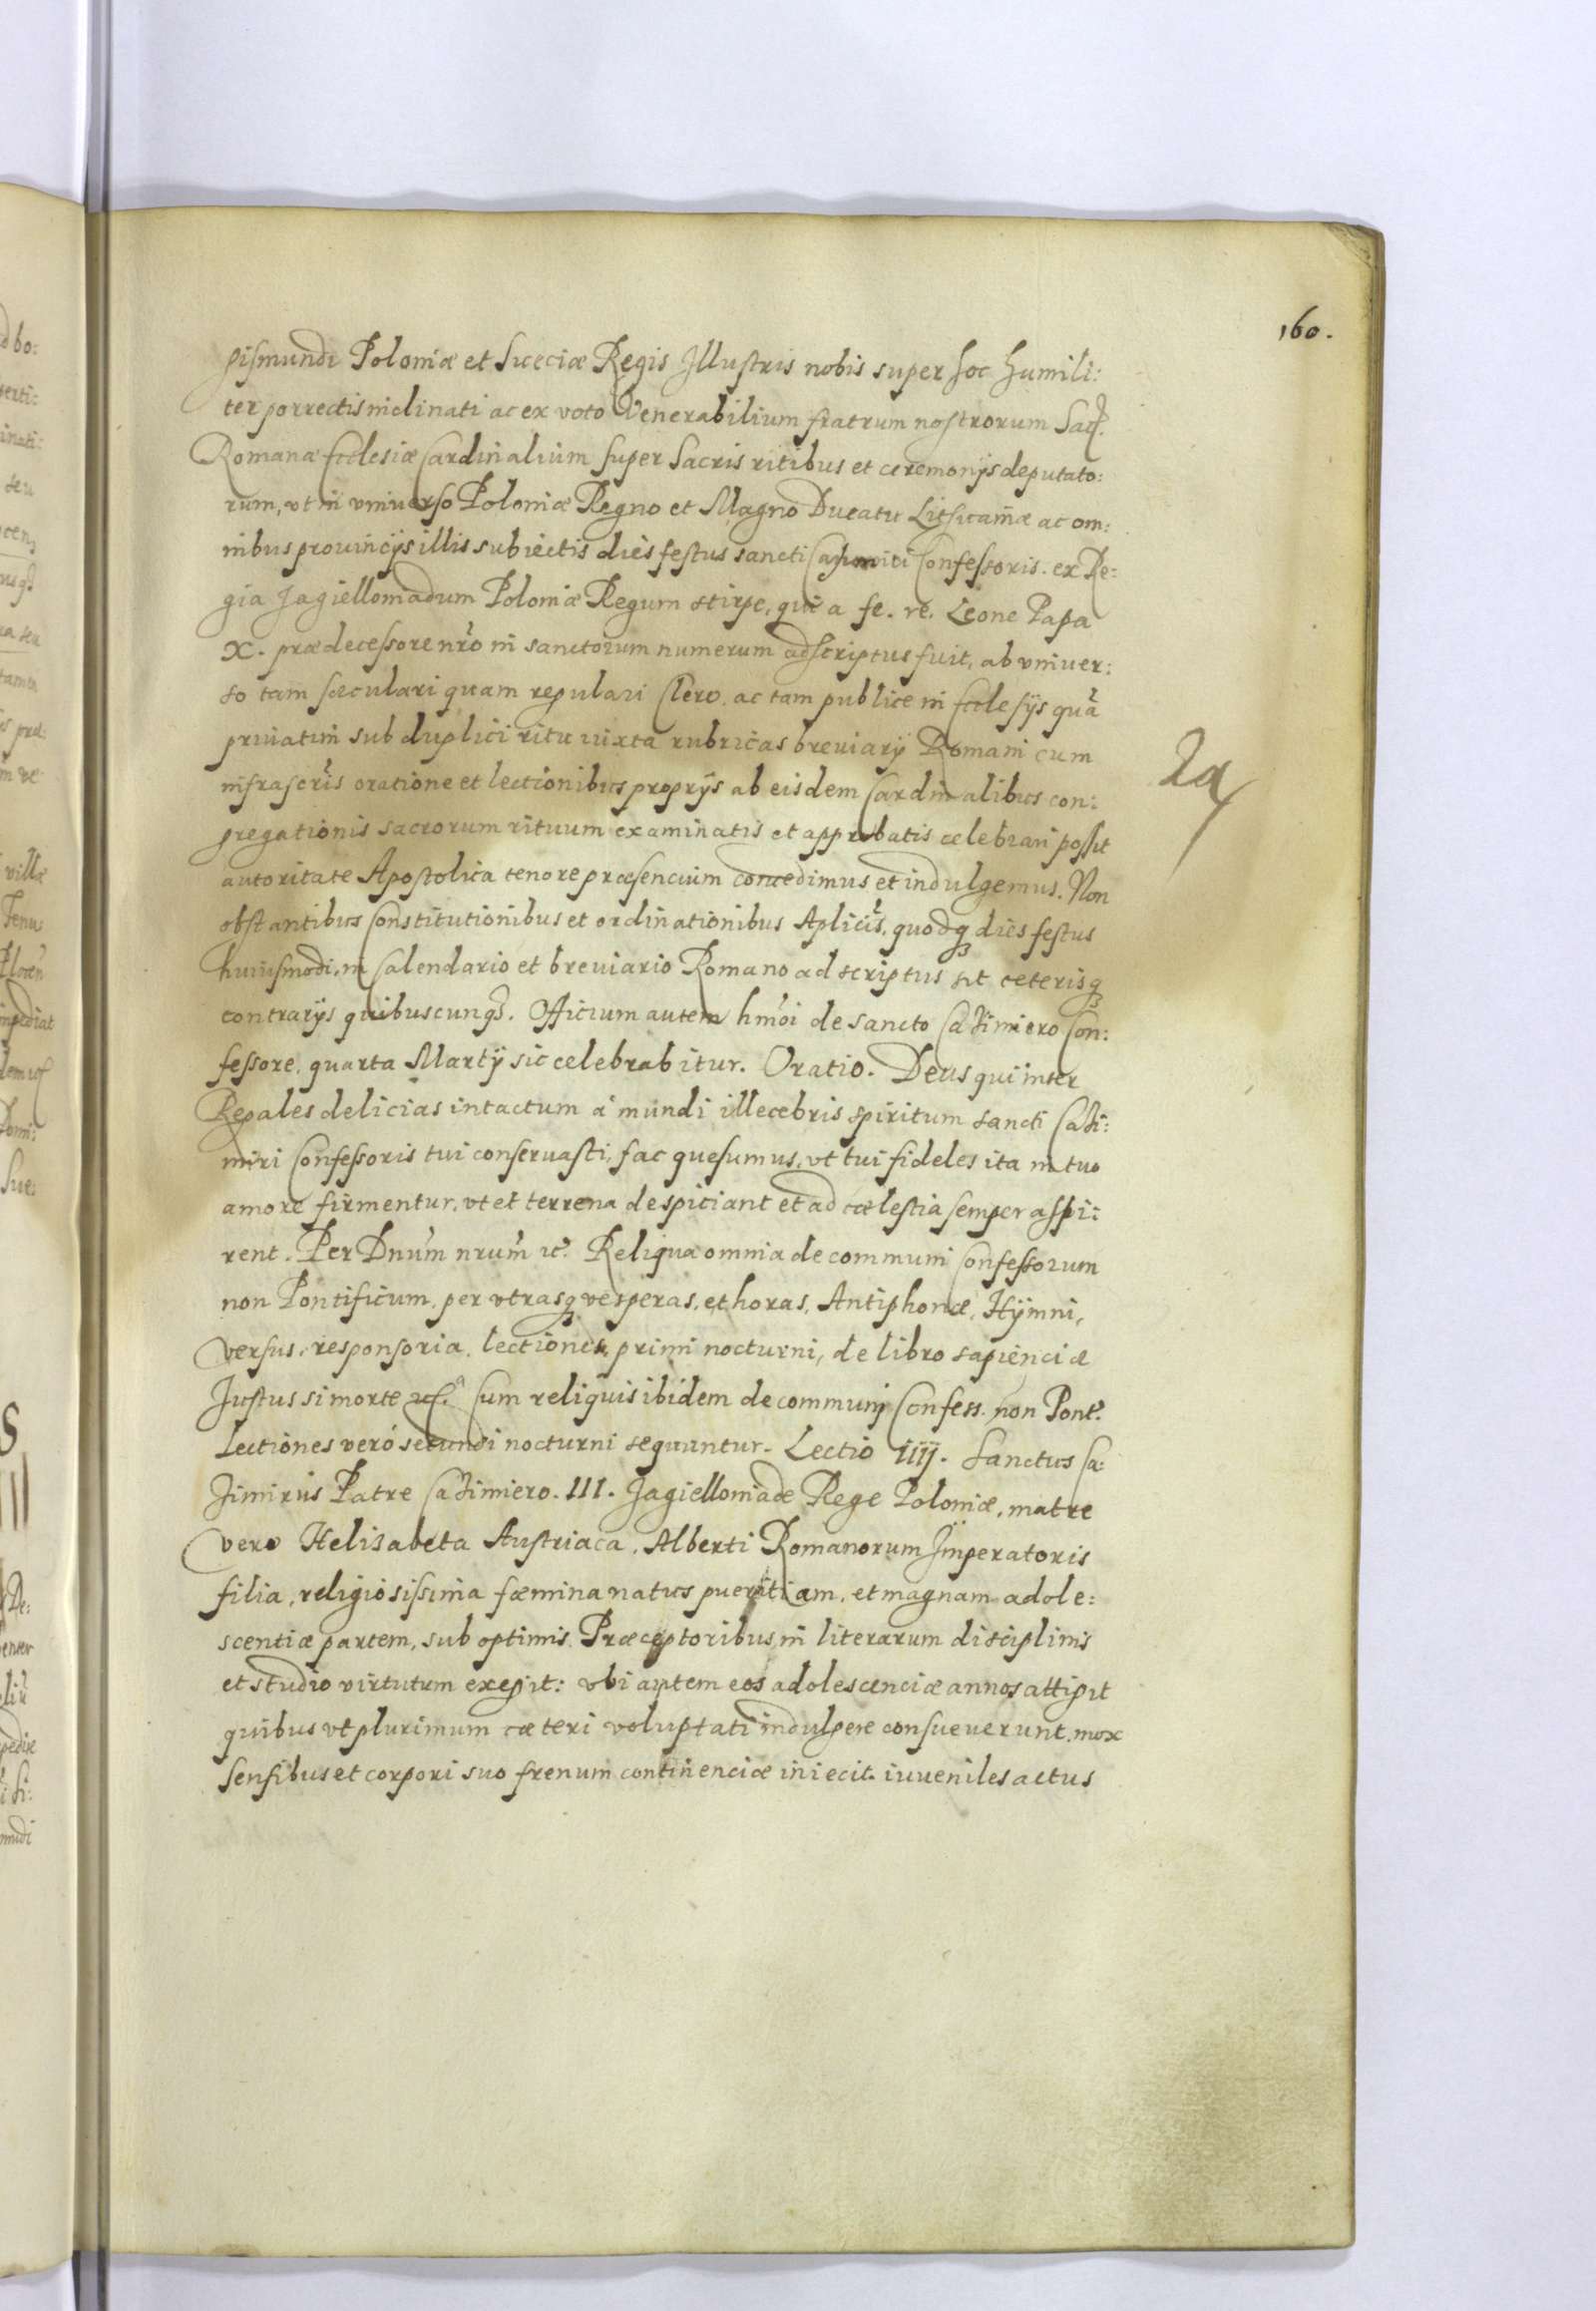 160.
gismundi Poloniæ et Sueciæ Regis Illustris nobis super hoc humili:
ter porrectis inclinati ac ex voto Venerabilium fratrum nostrorum Sacr.
Romanæ Ecclesiæ Cardinalium super Sacris ritibus et ceremonijs deputato:
rum, vt in vniuerso Poloniæ Regno et Magno Ducatu Lithuaniæ ac om:
nibus prouincijs illis subiectis dies festus sancti Casimiri Confessoris. ex Re:
gia Jagiellomadum Poloniæ Regum stirpe, qui a fe. re. Leone Papa
X. prædecessore nro in sanctorum numerum adscriptus fuit, ab vniuer:
so tam sæculari quam regulari Clero. ac tam publice in Ecclesijs quā
priuatim sub duplici ritu iuxta rubricas breuiarij Romani cum
infrascris oratione et lectionibus proprijs ab eisdem Cardinalibus con:
gregationis sacrorum rituum examinatis et approbatis celebrari possit
autoritate Apostolica tenore præsencium concedimus et indulgemus. Non
obstantibus Constitutionibus et ordinationibus Aplicis, quodq dies festus
huiusmodi, in Calendario et breuiario Romano adscriptus sit ceterisq
contrarijs quibuscunq. Officium autem hmoi de sancto Casimiero Con:
fessore, quarta Martij sic celebrabitur. Oratio. Deus qui inter
Regales delicias intactum à mundi illecebris spiritum sancti Casi:
miri Confessoris tui conseruasti, fac quesumus, vt tui fideles ita in tuo
amore firmentur, vt et terrena despiciant et ad cœlestia semper aspi:
rent. Per Dnum nrum etc. Reliqua omnia de communi Confessorum
non Pontificum, per vtrasq vesperas, et horas, Antiphonæ, Hÿmni,
versus, responsoria, lectiones, primi nocturni, de libro sapienciæ
Justus si morte Cum reliquis ibidem de communi Confess. non Pont.
Lectiones verò secundi nocturni sequuntur. Lectio IIIJ. Sanctus Ca:
simirus Patre Casimiero. III. Jagielloniade Rege Poloniæ, matre
vero Helisabeta Austriaca, Alberti Romanorum Imperatoris
filia, religiosissima fæmina natus pueritiam, et magnam adole:
scentiæ partem, sub optimis Præceptoribus, in literarum disciplinis
et studio virtutum exegit: vbi autem eos adolescenciæ annos attigit
quibus vt plurimum cæteri voluptati indulgere consueuerunt, mox
sensibus et corpori suo frenum continenciæ iniecit. iuueniles actus